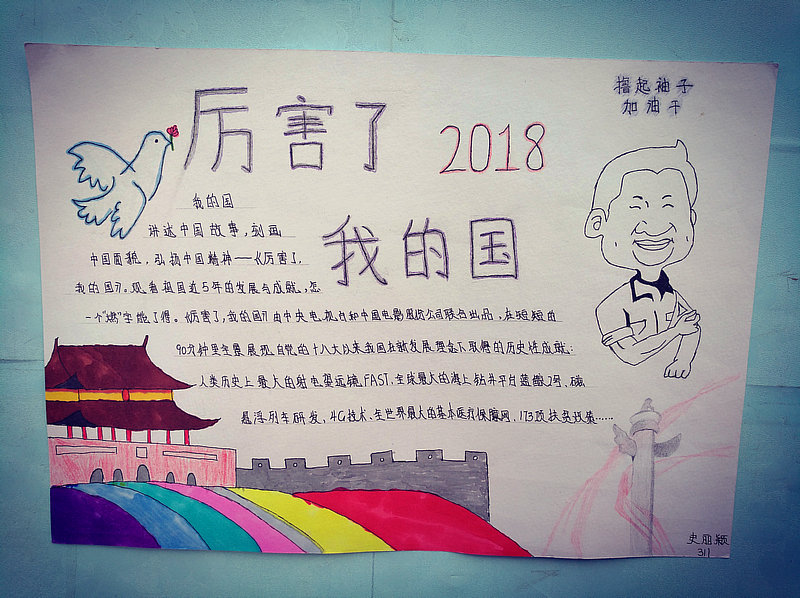 厉害了
2018
撸起袖子
加油干
我的国
我的国
讲述中国故事，刻画
中国面貌，弘扬中国精神——《厉害了，
我的国》。观看祖国近5年的发展与成就，怎
一个"燃"字能了得。《厉害了，我的国》由中央电视台和中国电影股份公司联合出品，在短短的
90分钟里完整展现自党的十八大以来我国在新发展理念下取得的历史性成就：
人类历史上最大的射电望远镜FAST、全球最大的海上钻井平台蓝鲸2号、磁
悬浮列车研发、4G技术、全世界最大的基本医疗保障网、173项扶贫政策……
史
颖
311